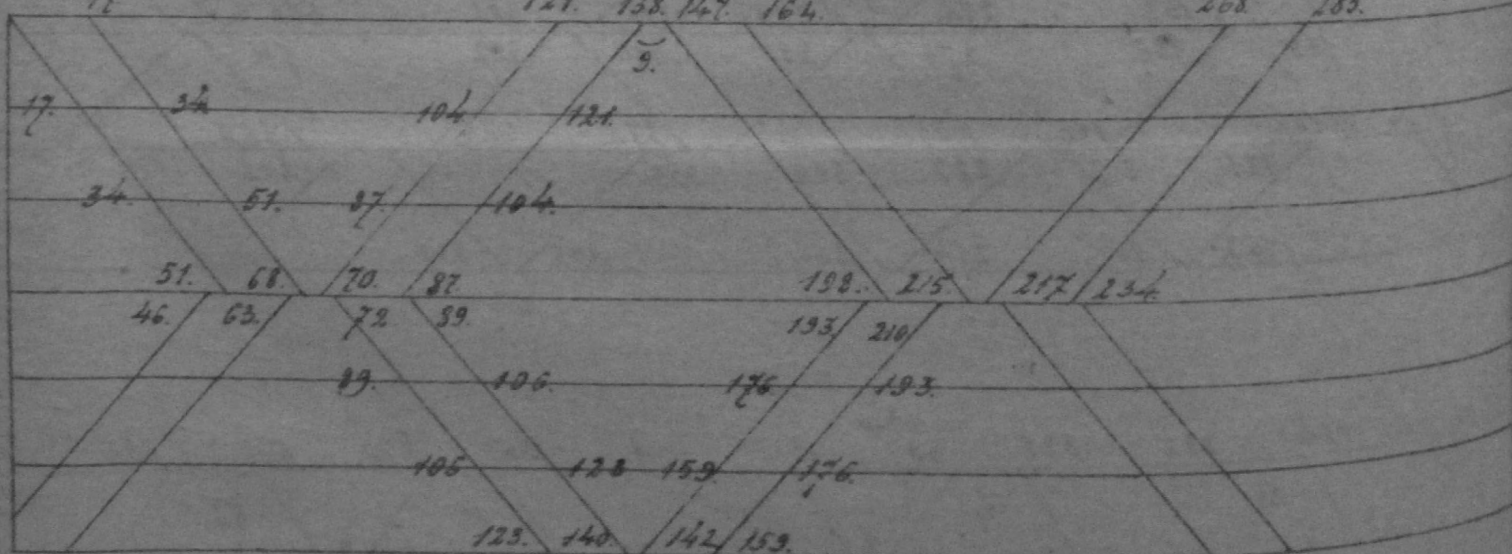 17. 121. 138. 147. 164. 268. 285.
9.
17. 34. 104. 121.
34. 51. 87. 104.
51. 68. 70. 87. 198. 215. 217. 234.
46. 63. 72 89. 193. 210.
89. 106. 176. 193.
106 123 159. 176.
123. 140. 142. 159.